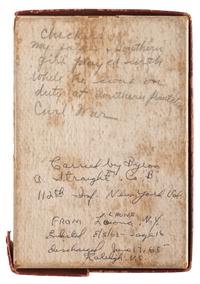 Checkers
my father & Southern
girl played with
while he was on
duty at Southern
Civil War
Carried by Byron
A Straight Co B
112th Inf. New York Vol.
FROM LAONA N.Y.
Enlisted 8/8/62 - age 16
discharged June 13, 1865
Raleigh N.C.